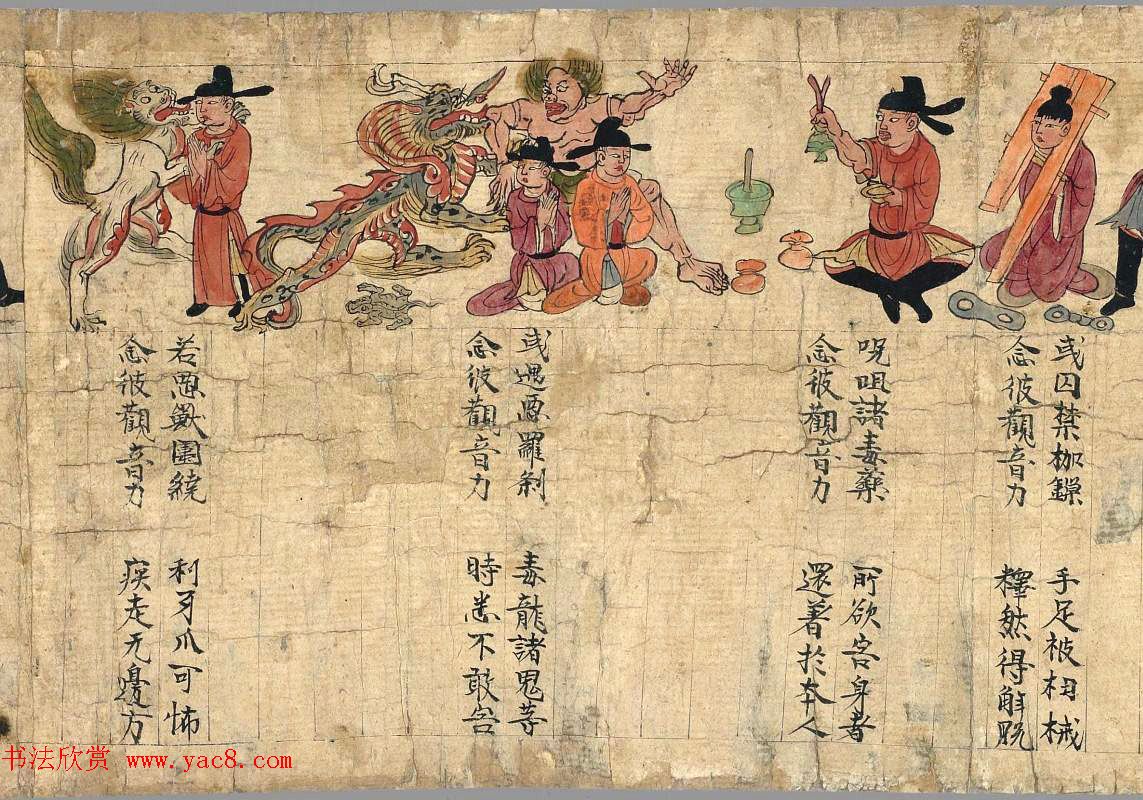 或囚禁枷鏁 手足被杻械
念彼觀音力 釋然得解脫
呪咀諸毒藥 所欲害身者
念彼觀音力 還著於本人
或遇惡羅剎 毒龍諸鬼等
念彼觀音力 時悉不敢害
若惡獸圍繞 利牙爪可怖
念彼觀音力 疾走无邊方
书法欣赏 www.yac8.com